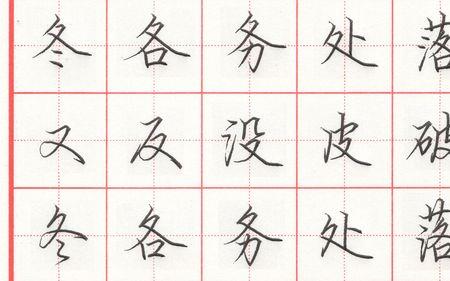 冬各务处落
又反没皮破
冬各务处落